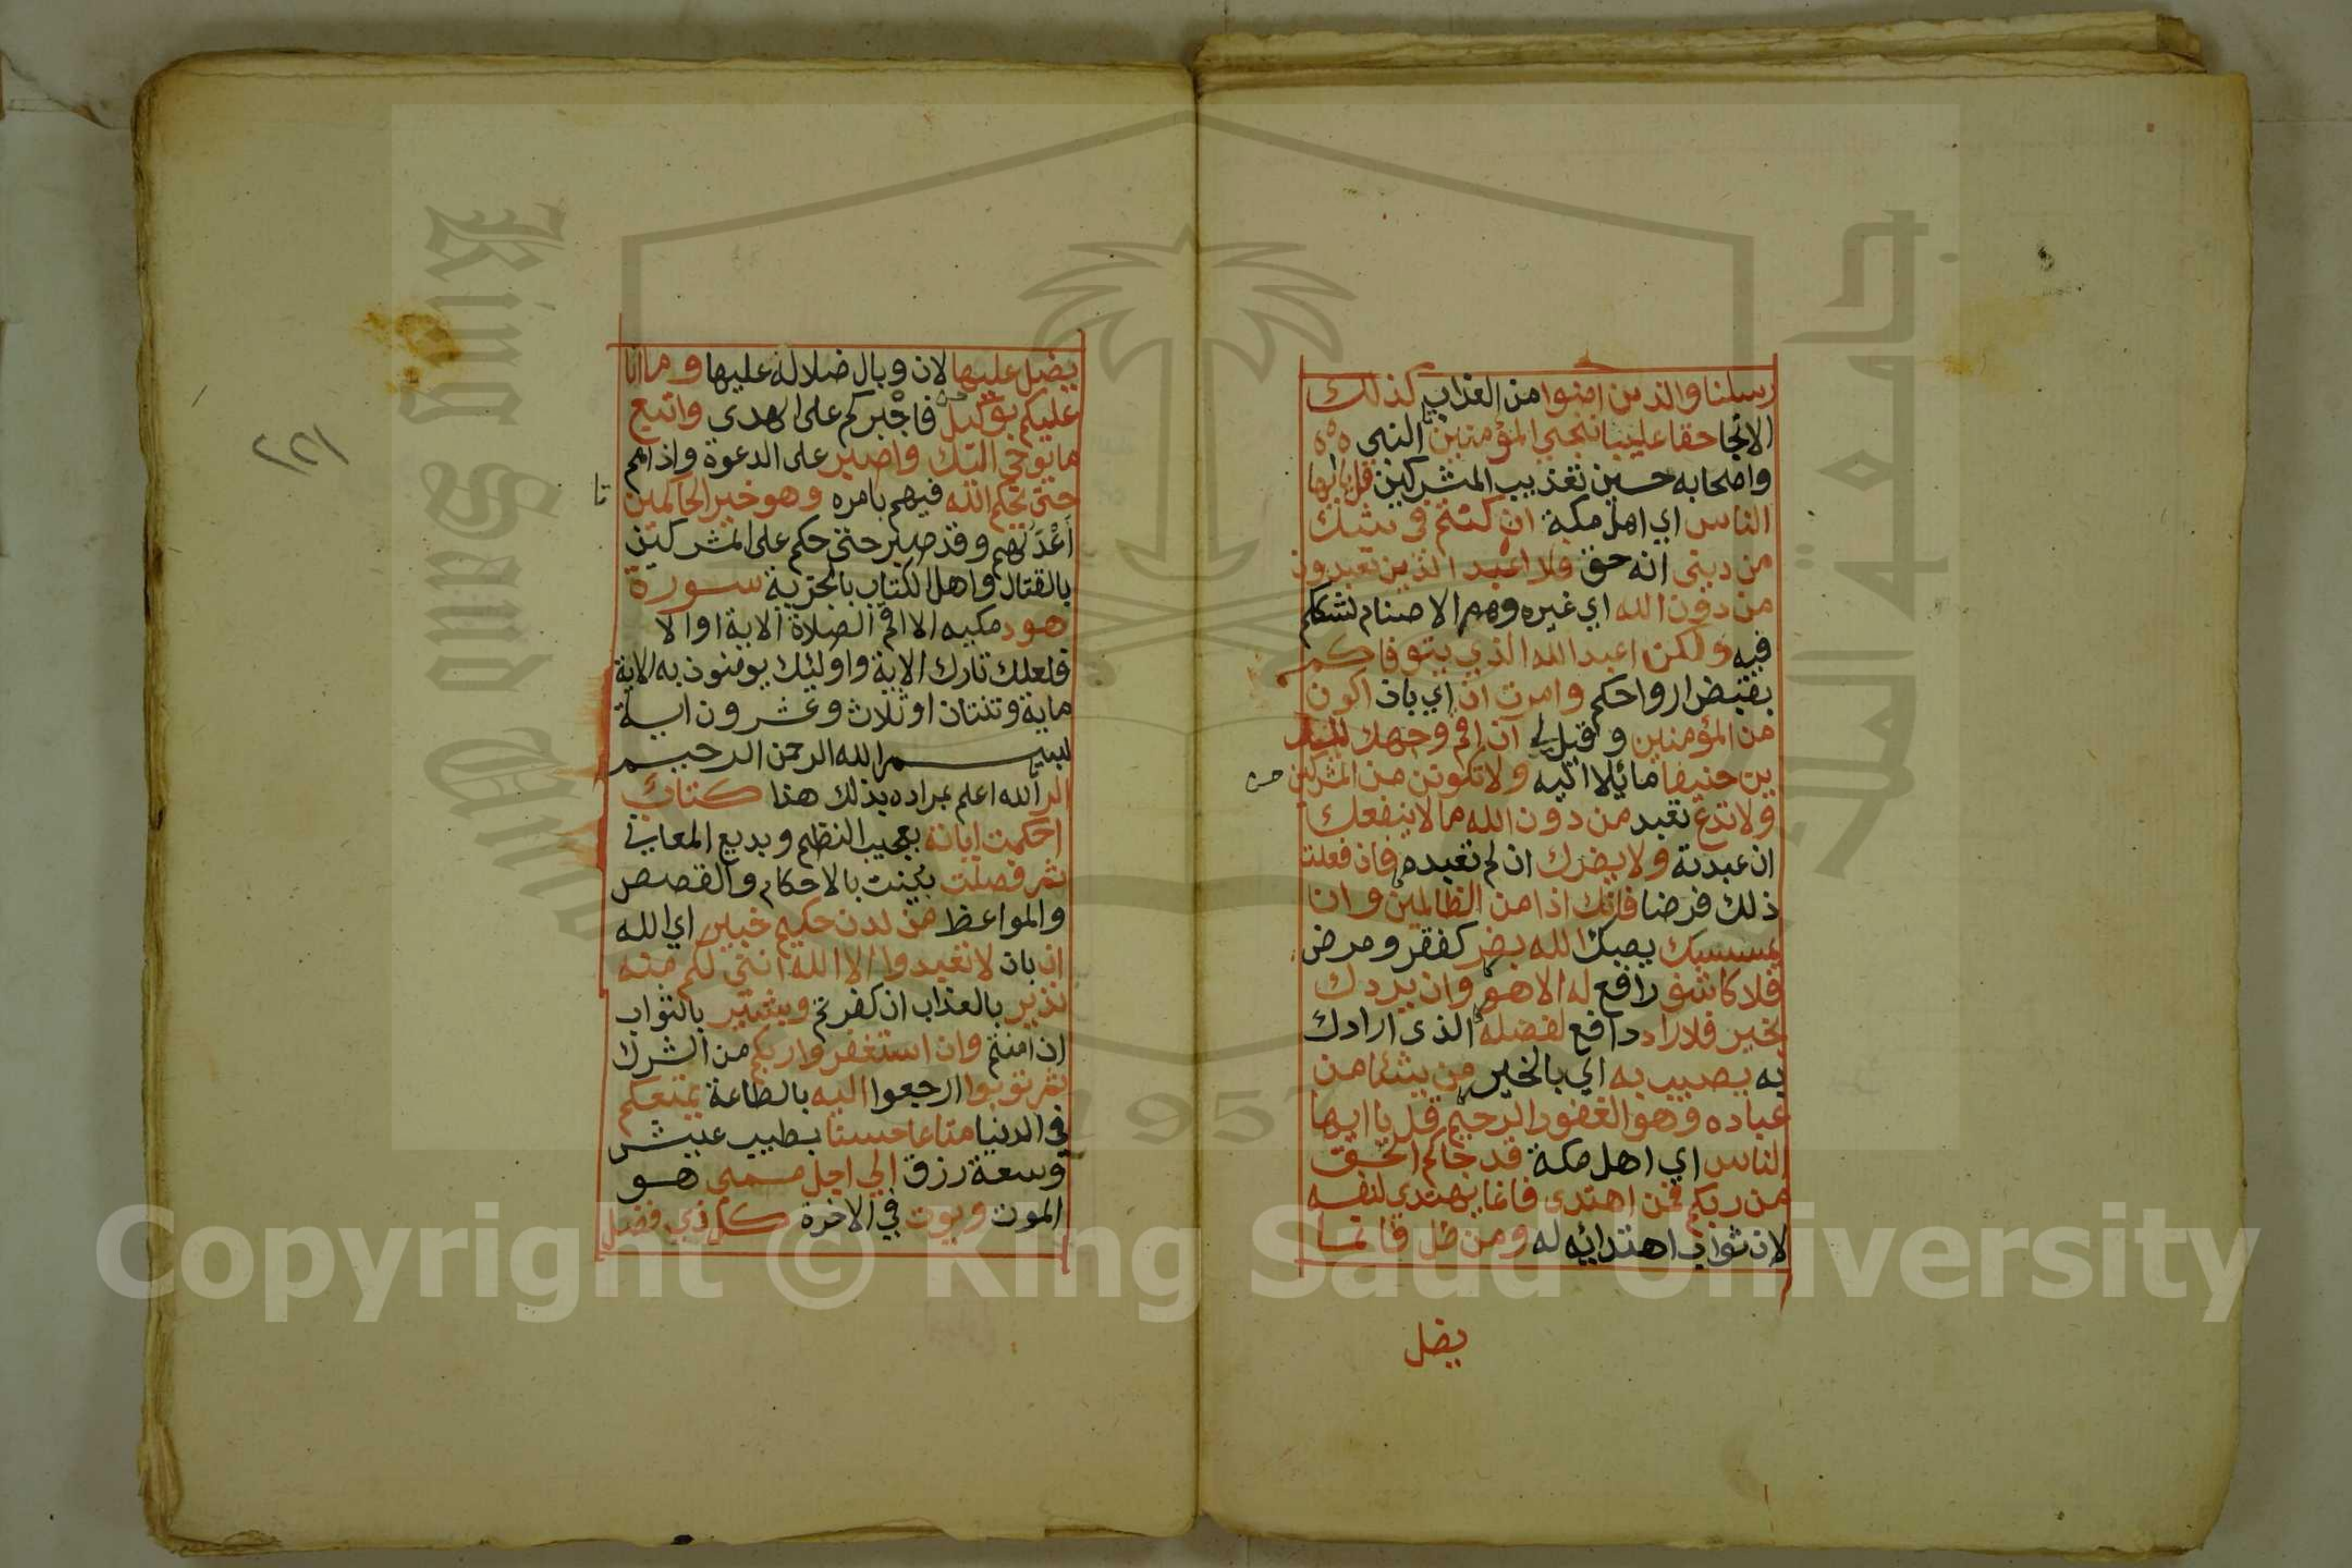 رسلنا والذين امنوا من العذاب كذلك
الانجا حقا علينا ننجي المؤمنين النبي ه ه ه
واصحابه حسين تعذيب المشركين قل يا ايها
الناس اي اهل مكة ان كنتم في شك
من ديني انه حق فلا اعبد الذين تعبدون
من دون الله اي غيره وهم الاصنام لشككم
فيه ولكن اعبد الله الذي يتوفاكم
بقبض ارواحكم وامرت ان اي بان اكون
من المؤمنين وقيل لي ان اقم وجهك للد
ين حنيفا مائلا اليه ولا تكونن من المشركين
ولا تدع تعبد من دون الله ما لا ينفعك
ان عبدته ولا يضرك ان لم تعبده فان فعلت
ذلك فرضا فانك اذا من الظالمين وان
يمسسك يصبك الله بضر كفقر ومرض
فلا كاشف رافع له الا هو وان يردك
بخير فلا راد دافع لفضله الذى ارادك
به يصيب به اي بالخير من يشا من
عباده وهو الغفور الرحيم قل يا ايها
الناس اي اهل مكة قد جاكم الحق
من ربكم فمن اهتدى فانما يهتدي لنفسه
لان ثواب اهتدائه له ومن ضل فانما
يضل
يضل عليها لان وبال ضلاله عليها وما انا
عليكم بوكيل فاجبركم على الهدى واتبع
ما يوحى اليك واصبر على الدعوة واذاهم
حتى يحكم الله فيهم بامره وهو خير الحاكمين
اعدلهم وقد صبر حتى حكم على المشركين
بالقتال واهل الكتاب بالجزية سورة
هود مكيه الا اقم الصلاة الاية او الا
فلعلك تارك الاية واوليك يومنون به الاية
ماية وثنتان او ثلاث وعشرون اية
بسم الله الرحمن الرحيم
الر الله اعلم بمراده بذلك هذا كتاب
احكمت اياته بعجيب النظم وبديع المعاني
ثم فصلت بينت بالاحكام والقصص
والمواعظ من لدن حكيم خبير اي الله
ان بان لا تعبدوا الا الله انني لكم منه
نذير بالعذاب ان كفرتم وبشير بالثواب
ان امنتم وان استغفروا ربكم من الشرك
ثم توبوا ارجعوا اليه بالطاعة يمتعكم
في الدنيا متاعا حسنا بطيب عيش
وسعة رزق الي اجل مسمى هو
الموت ويوت في الاخرة كل ذي فضل
٢٢١
King Saud University
جامعة الملك
1957
Copyright © King Saud University